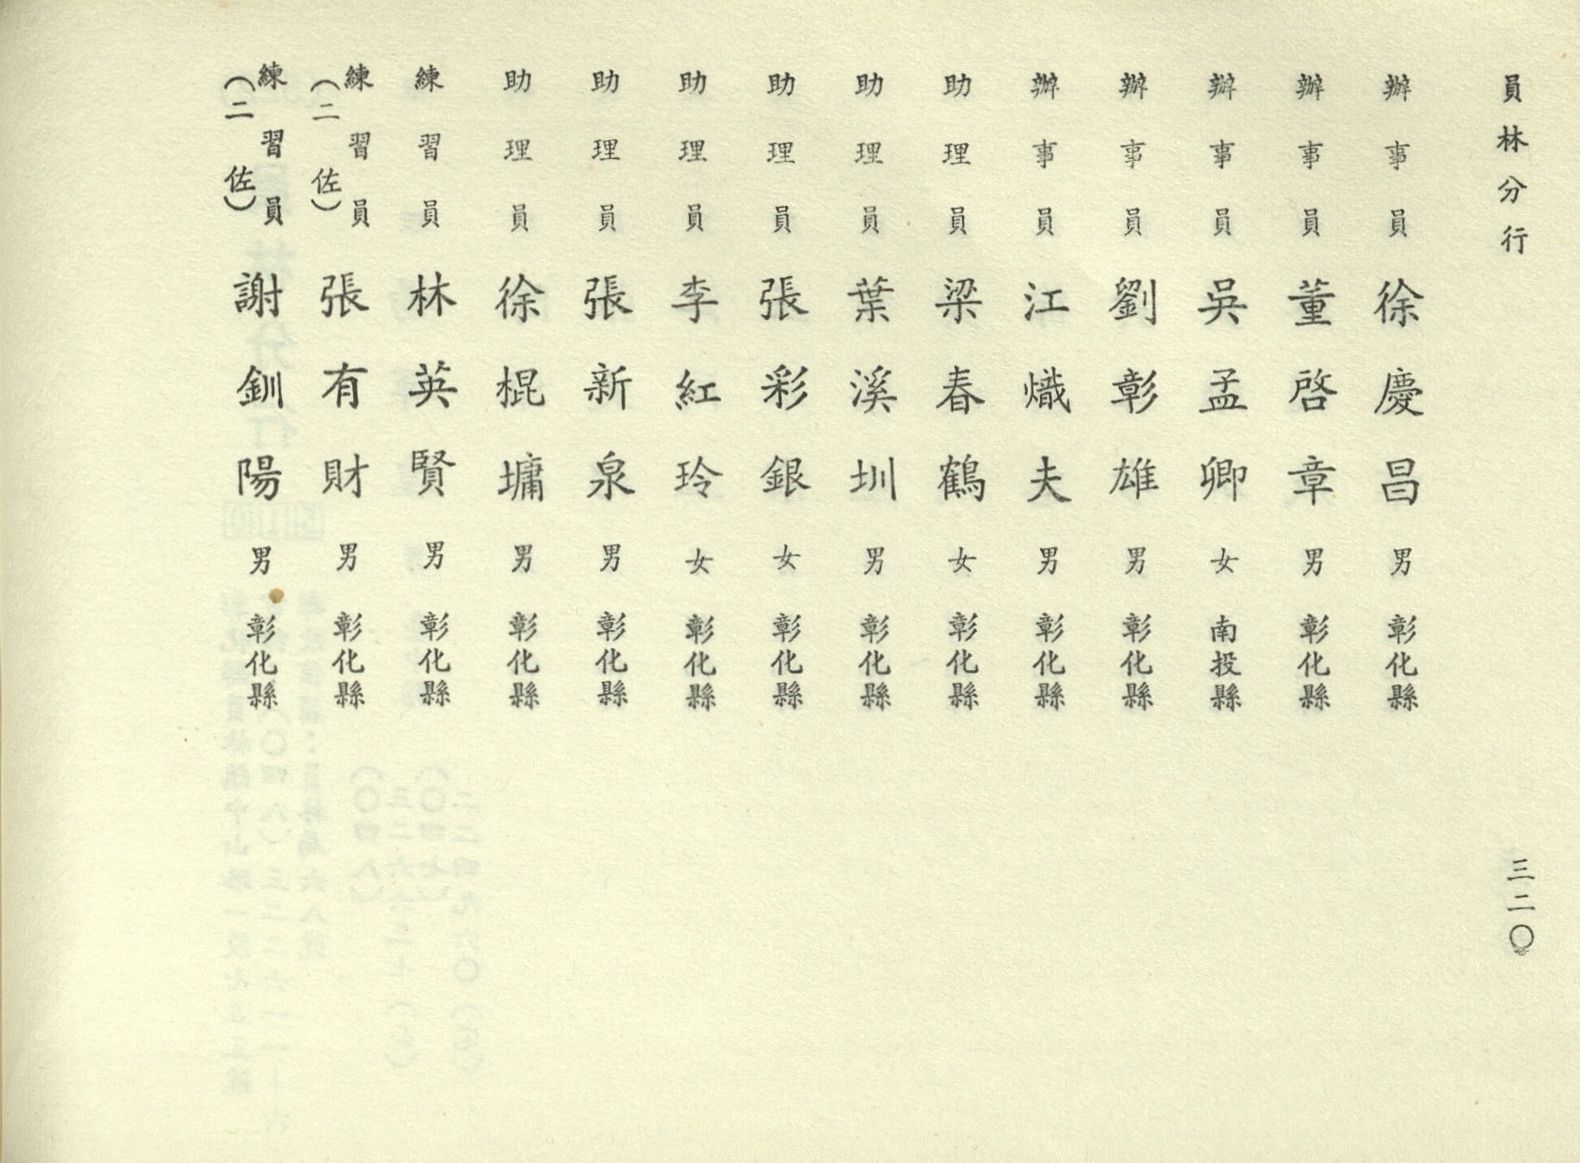 員林分行
三二〇
辦事員 徐慶昌 男 彰化縣
辦事員 董啓章 男 彰化縣
辦事員 吳孟卿 女 南投縣
辦事員 劉彰雄 男 彰化縣
辦事員 江熾夫 男 彰化縣
助理員 梁春鶴 女 彰化縣
助理員 葉溪圳 男 彰化縣
助理員 張彩銀 女 彰化縣
助理員 李紅玲 女 彰化縣
助理員 張新泉 男 彰化縣
助理員 徐棍墉 男 彰化縣
練習員 林英賢 男 彰化縣
練習員(二佐) 張有財 男 彰化縣
練習員(二佐) 謝釧陽 男 彰化縣